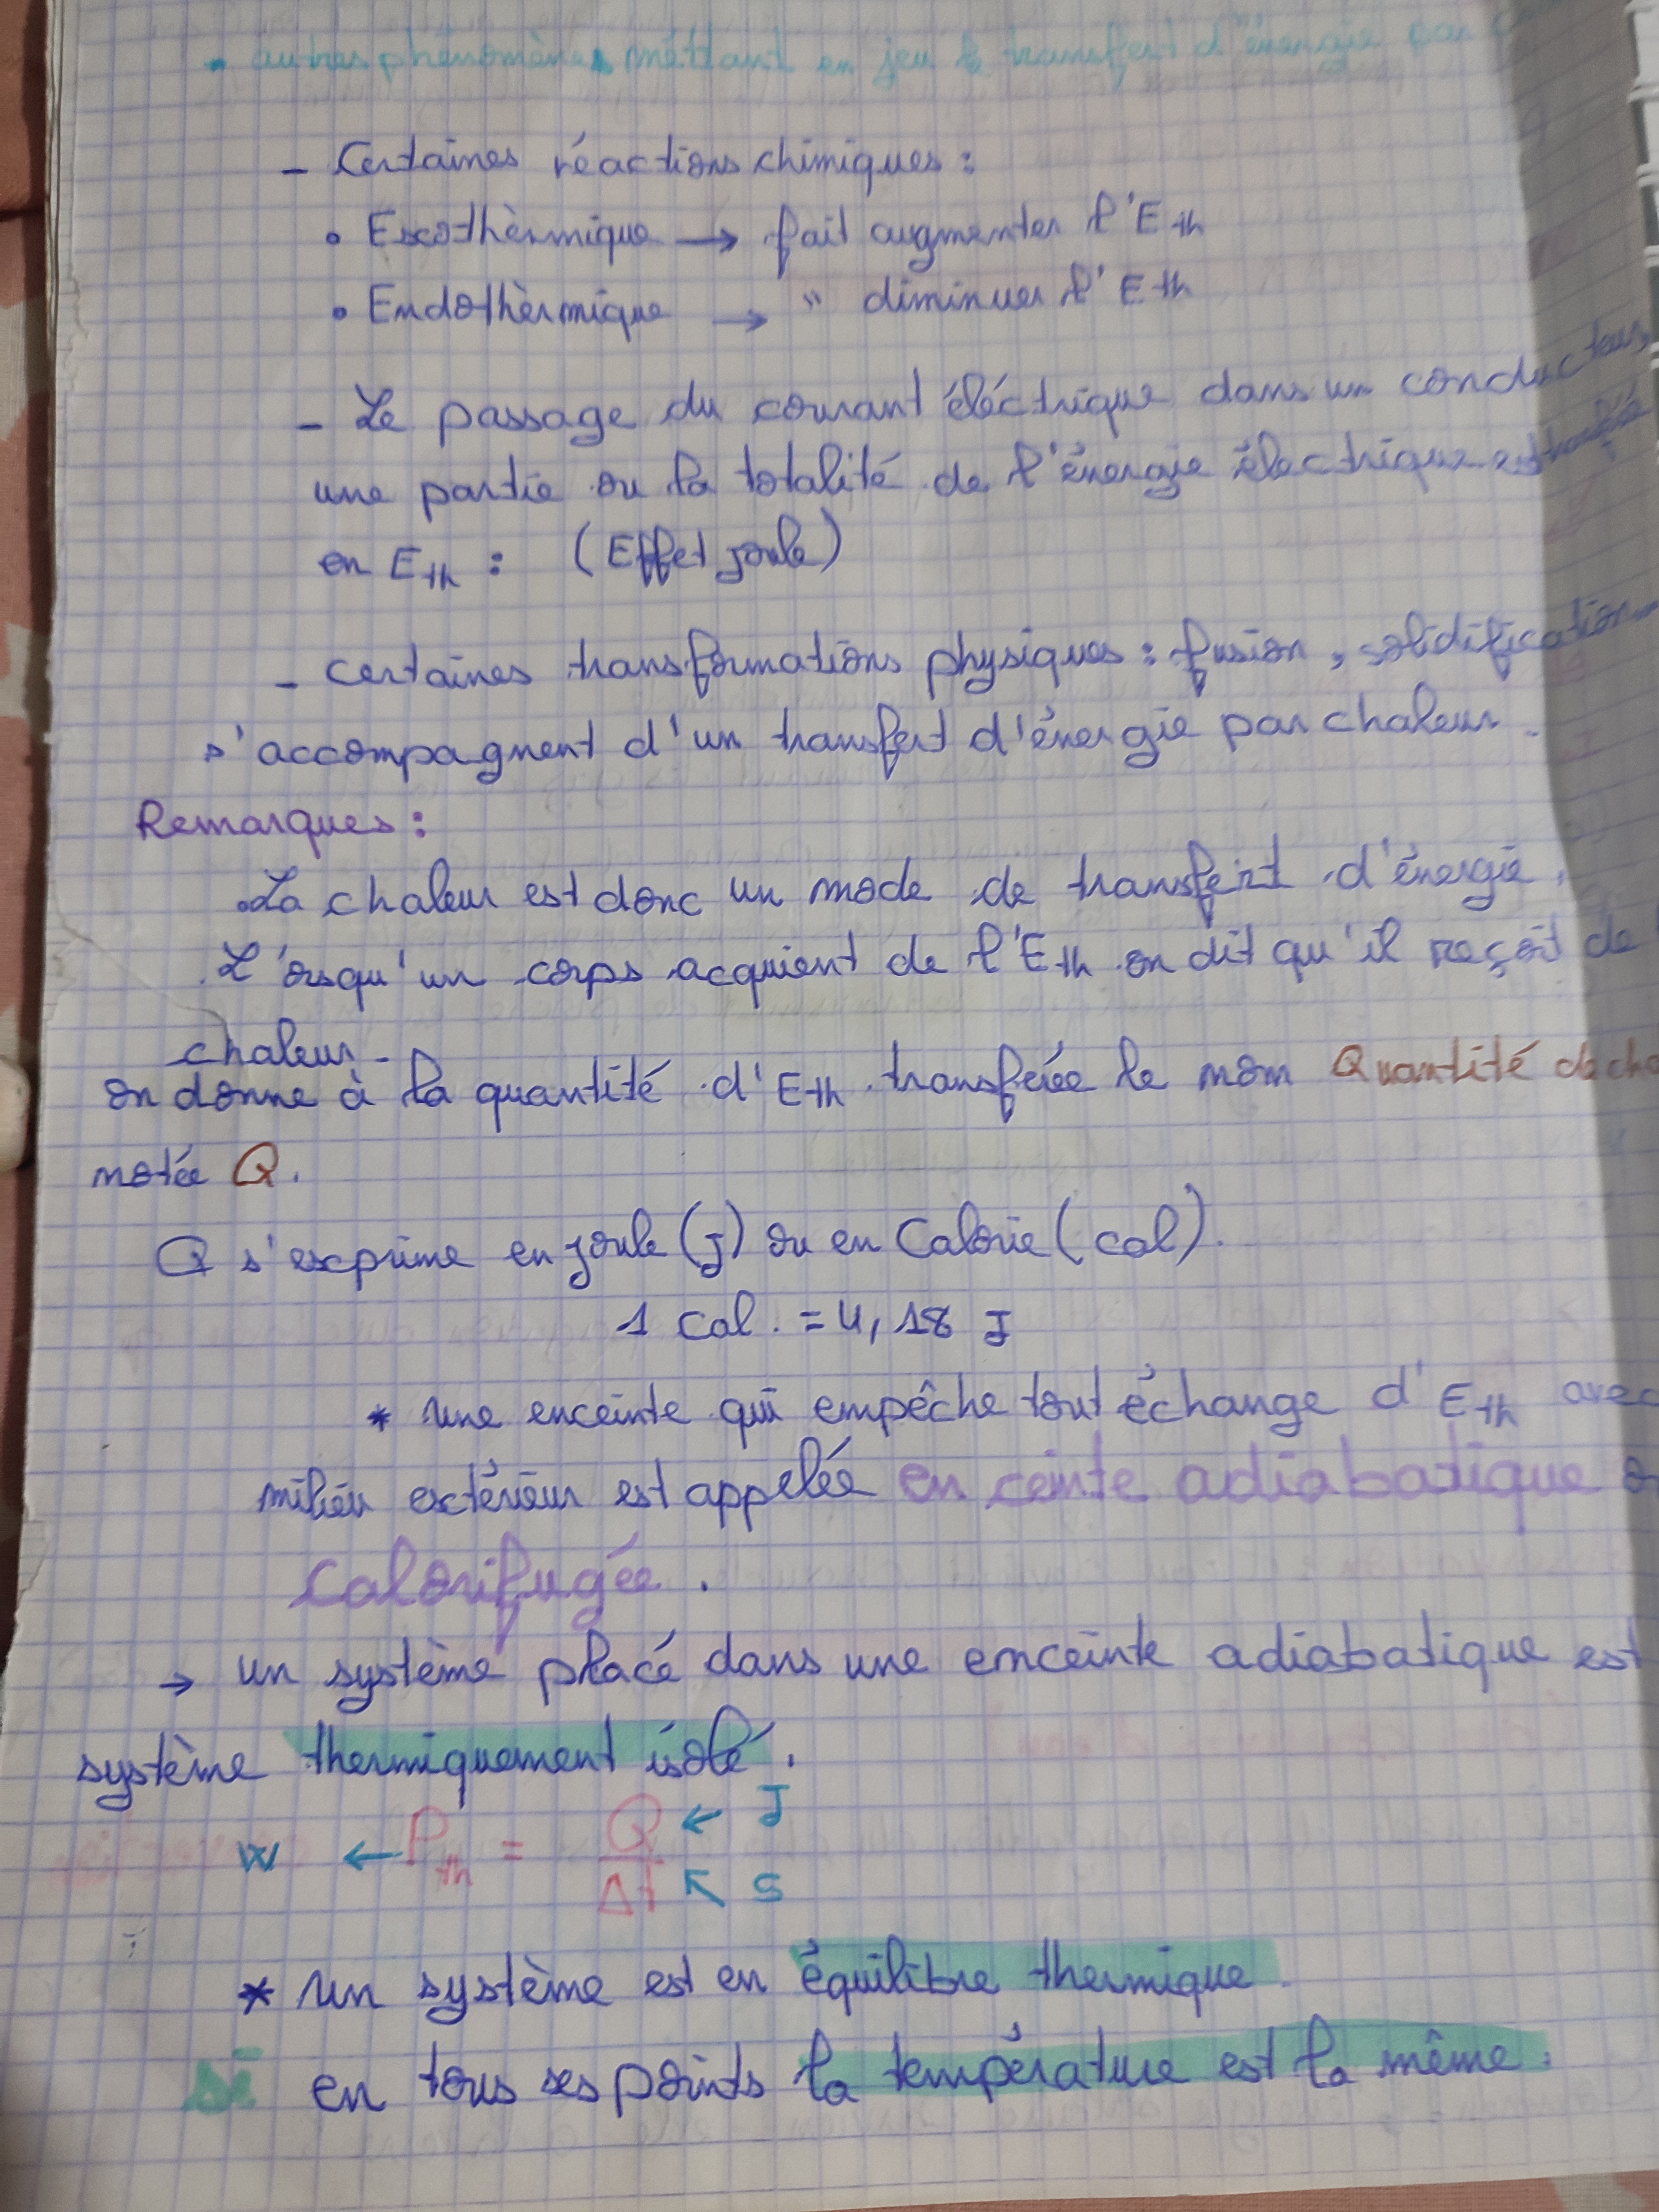 • autres phénomènes méttant en jeu le transfert d'énergie par
- Certaines réactions chimiques :
• Exothèrmique → fait augmenter l'Eth
• Endothèrmique → " diminuer l'Eth
- Le passage du courant éléctrique dans un conducteur,
une partie ou la totalité de l'énergie électrique est
en Eth : (Effet joule)
- certaines transformations physiques : fusion, solidification
s'accompagnent d'un transfert d'énergie par chaleur.
Remarques :
. La chaleur est donc un mode de transfert d'énergie.
. L'orsqu'un corps acquient de l'Eth on dit qu'il reçoit de
chaleur.
on donne à la quantité d'Eth transférée le nom Quantité de cha
notée Q.
Q s'exprime en joule (J) ou en Calorie (cal).
1 Cal. = 4,18 J
* une enceinte qui empêche tout échange d'Eth avec
milieu extérieur est appelée en ceinte adiabatique o
Calorifugée.
→ un système placé dans une enceinte adiabatique est
système thermiquement isolé.
W ← Pth = Q/Δt ← J ↖ s
* un système est en équilibre thermique
si en tous ses points la température est la même.